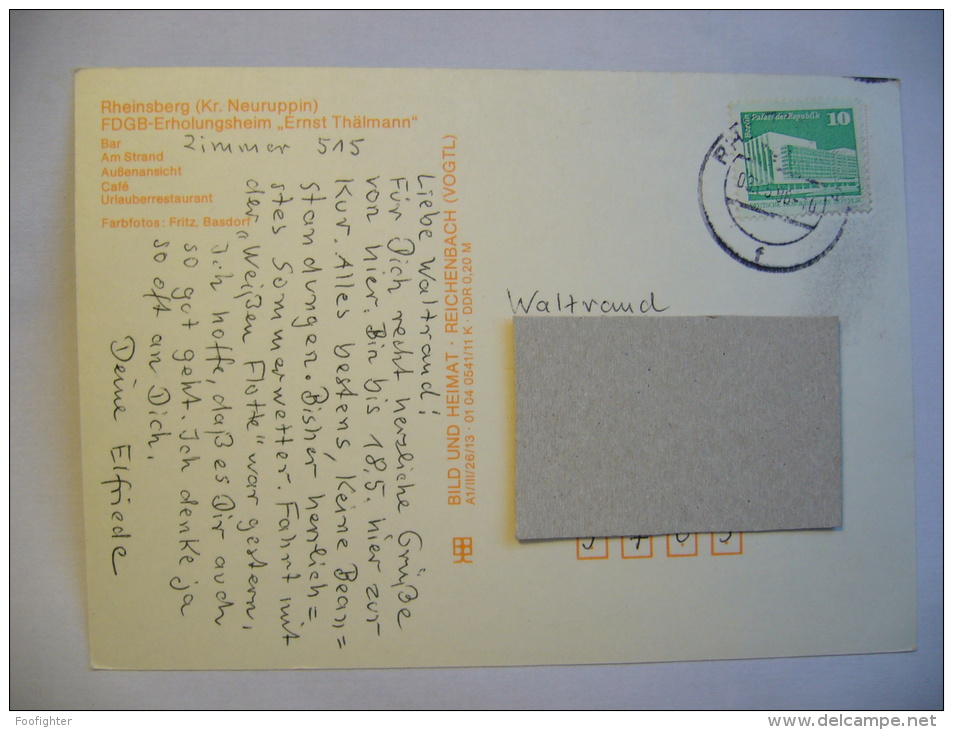 Rheinsberg (Kr. Neuruppin)
FDGB-Erholungsheim „Ernst Thälmann"
Bar
Am Strand
Außenansicht
Café
Urlauberrestaurant
Farbfotos: Fritz, Basdorf
Zimmer 515
Liebe Waltraud!
Für Dich recht herzliche Grüße
von hier. Bin bis 18.5. hier zur
Kur. Alles bestens, keine Bean=
standungen. Bisher herrlich=
stes Sommerwetter. Fahrt mit
der „Weißen Flotte" war gestern.
Ich hoffe, daß es Dir auch
so gut geht. Ich denke ja
so oft an Dich.
Deine Elfriede
BILD UND HEIMAT · REICHENBACH (VOGTL)
A1/III/26/13 · 01 04 0541/11 K · DDR 0,20 M
Berlin
Palast der Republik
10
f
Waltraud
Foofighter
www.delcampe.net